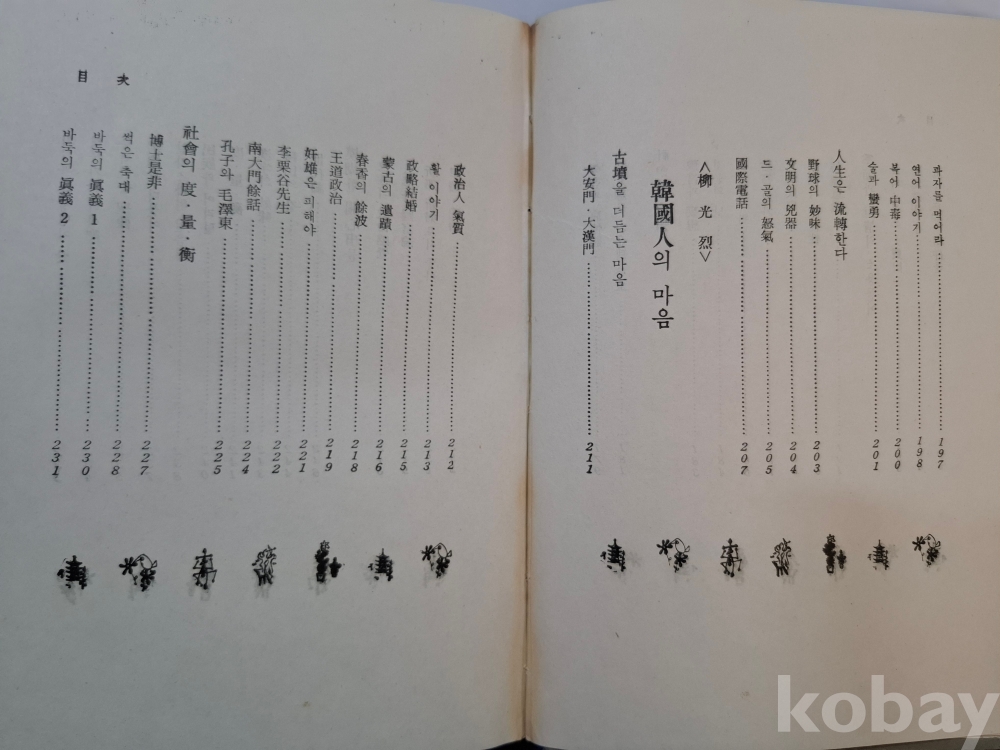 과자를 먹어라 197
연어 이야기 198
복어 中毒 200
술과 蠻勇 201
人生은 流轉한다
野球의 妙味 203
文明의 兇器 204
드·골의 怒氣 205
國際電話 207
<柳光烈>
韓國人의 마음
古墳을 더듬는 마음
大安門·大漢門 211
政治人 氣質 212
활 이야기 213
政略結婚 215
蒙古의 遺蹟 216
春香의 餘波 218
王道政治 219
奸雄은 피해야 221
李栗谷先生 222
南大門餘話 224
孔子와 毛澤東 225
社會의 度·量·衡
博士是非 227
썩은 축대 228
바둑의 眞義 1 230
바둑의 眞義 2 231
目次
kobay